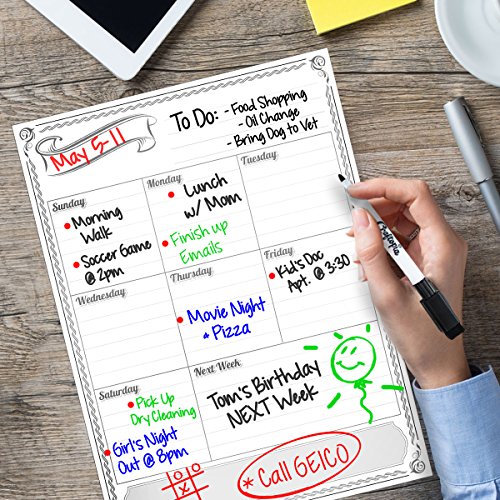 May 5-11
To Do: - Food Shopping
- Oil Change
- Bring Dog to Vet
Sunday
• Morning
Walk
• Soccer Game
@ 2pm
Monday
• Lunch
w/ Mom
• Finish up
Emails
Tuesday
Wednesday
Thursday
• Movie Night
& Pizza
Friday
• Kid's Doc
Apt. @ 3:30
Saturday
• Pick Up
Dry Cleaning
• Girl's Night
Out @ 8pm
Next Week
Tom's Birthday
NEXT Week
* Call GEICO